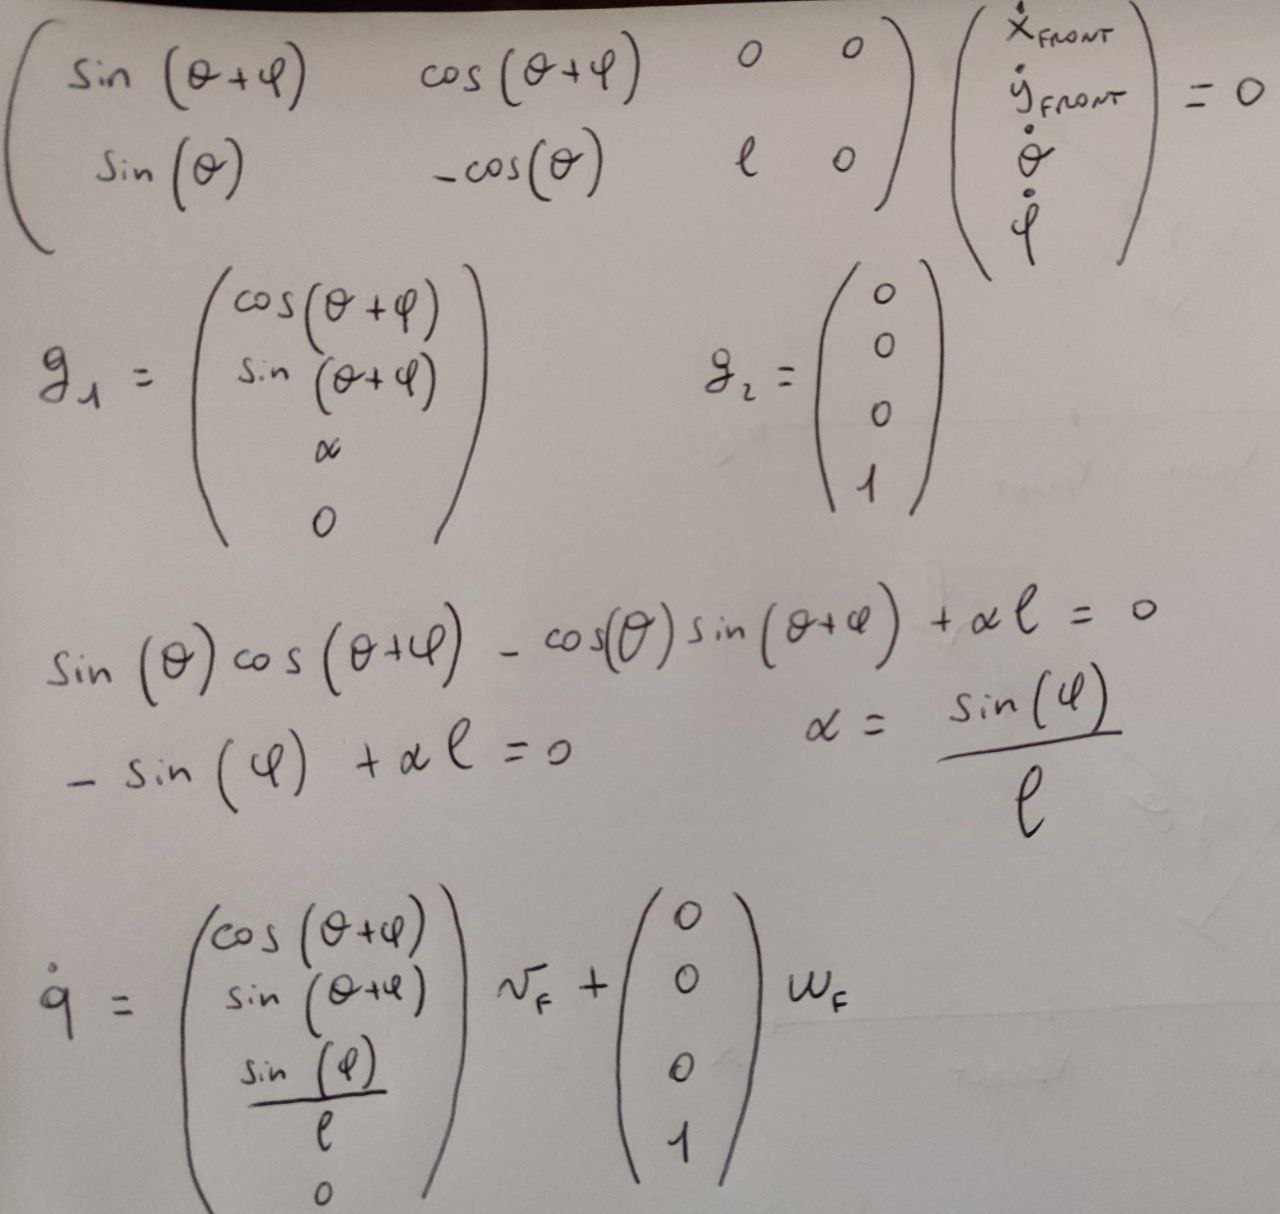 ( sin (θ+φ) cos (θ+φ) 0 0 ) ( ẋ_FRONT ) = 0
( sin (θ) -cos(θ) ℓ 0 ) ( ẏ_FRONT )
( θ̇ )
( φ̇ )
g_1 = ( cos(θ+φ) sin (θ+φ) α 0 ) g_2 = ( 0 0 0 1 )
sin (θ) cos (θ+φ) - cos(θ) sin (θ+φ) + αℓ = 0
- sin (φ) + αℓ = 0 α = sin (φ) / ℓ
q̇ = ( cos (θ+φ) sin (θ+φ) sin (φ) / ℓ 0 ) v_F + ( 0 0 0 1 ) w_F